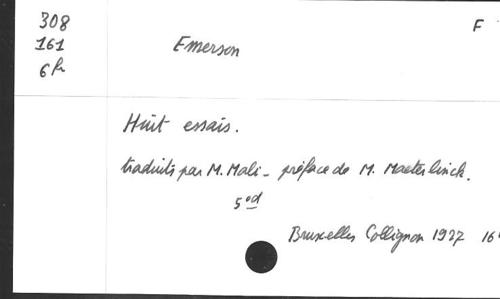 308
F
161
Emerson
6 fr
Huit essais.
traduits par M. Mali - préface de M. Maeterlinck.
5 ed
Bruxelles Collignon 1927 16